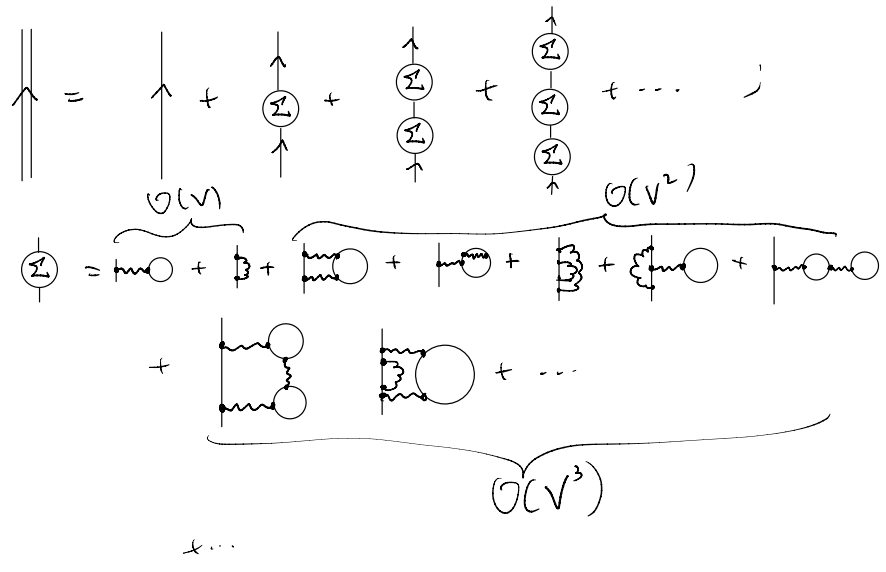 = + Σ + Σ Σ + Σ Σ Σ + ... ;
O(V) O(V²)
Σ = + + + + + + + ...
+ + ...
O(V³)
+ ...